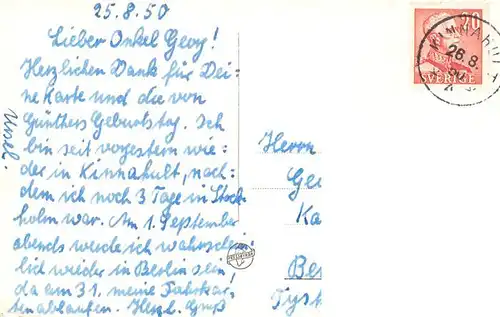 25.8.50
Lieber Onkel Georg!
Herzlichen Dank für Dei-
ne Karte und die von
Günthers Geburtstag. Ich
bin seit vorgestern wie-
der in Kinnahult, nach-
dem ich noch 3 Tage in Stock-
holm war. Am 1. September
abends werde ich wahrschein-
lich wieder in Berlin sein!
da am 31. meine Fahrkar-
ten ablaufen. Herzl. Gruß
Ursel.
20
SVERIGE
26.8.
Herrn
Ge
Ka
Be
Tysk